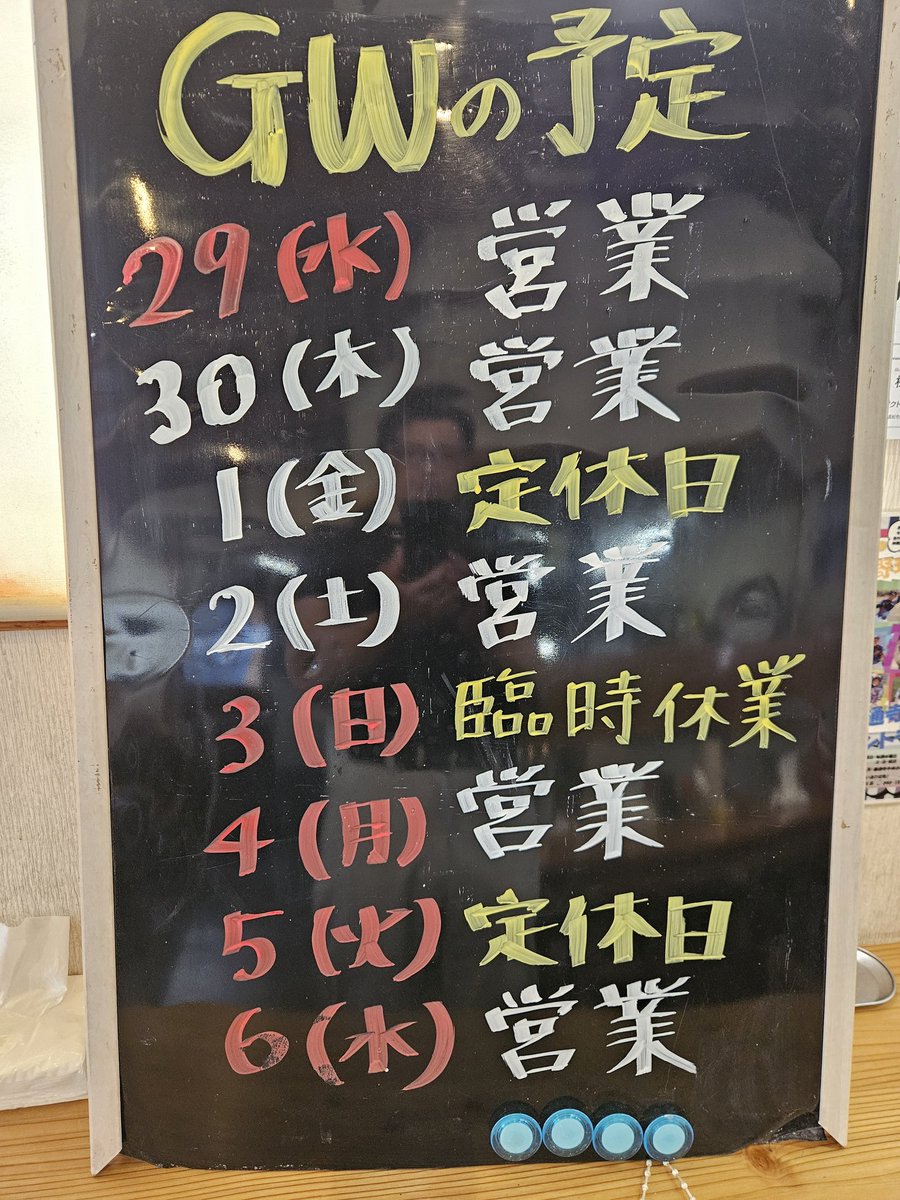 GWの予定
29(水) 営業
30(木) 営業
1(金) 定休日
2(土) 営業
3(日) 臨時休業
4(月) 営業
5(火) 定休日
6(水) 営業